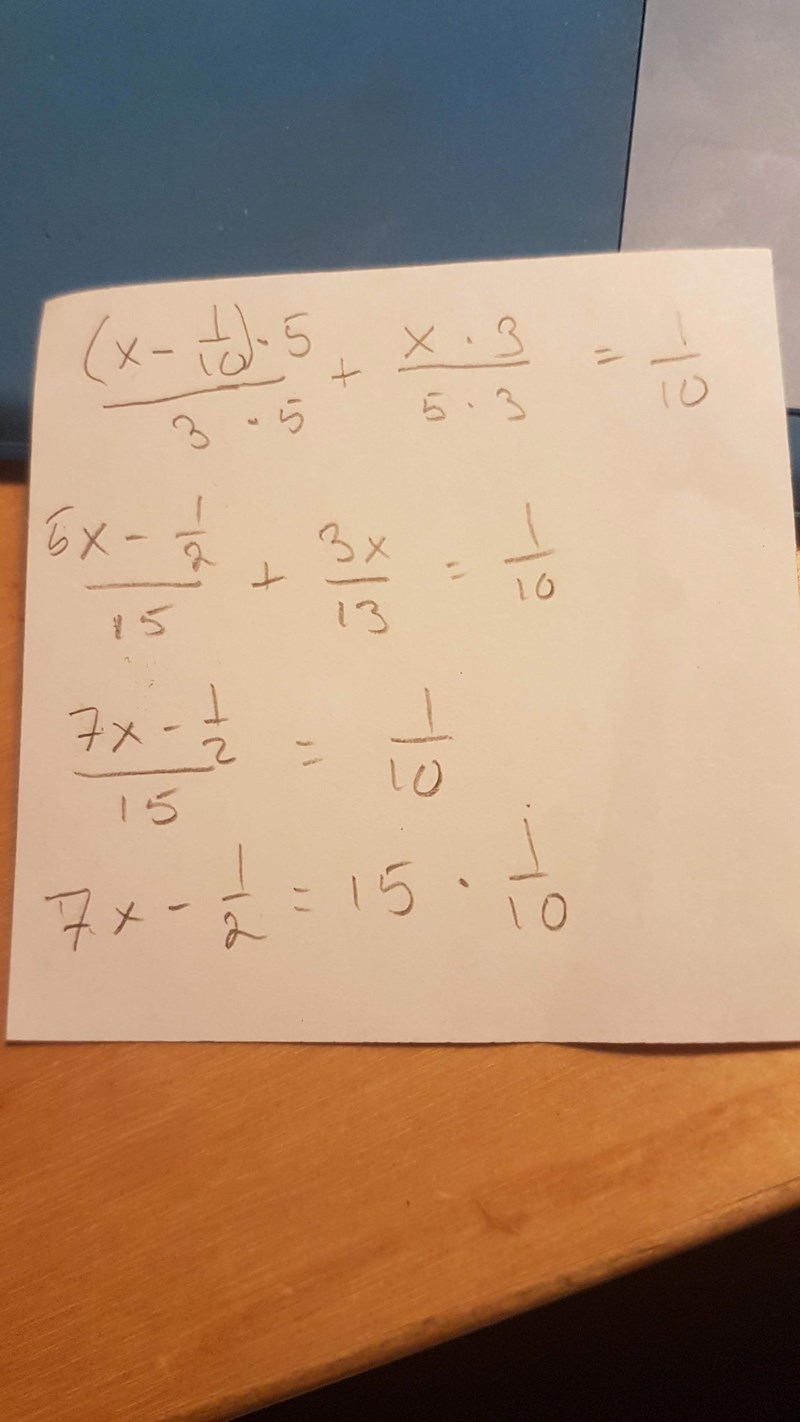 (x - 1/10) · 5 / 3 · 5 + x · 3 / 5 · 3 = 1/10
5x - 1/2 / 15 + 3x / 13 = 1/10
7x - 1/2 / 15 = 1/10
7x - 1/2 = 15 · 1/10